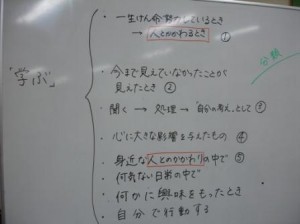 「学ぶ」
・一生けん命努力しているとき
→ 人とかかわるとき ①
・今まで見えていなかったことが
見えたとき ②
・聞く → 処理 → 「自分の考え」として ③
・心に大きな影響を与えたもの ④
・身近な人とのかかわりの中で ⑤
・何気ない日常の中で
・何かに興味をもったとき
・自分で行動する